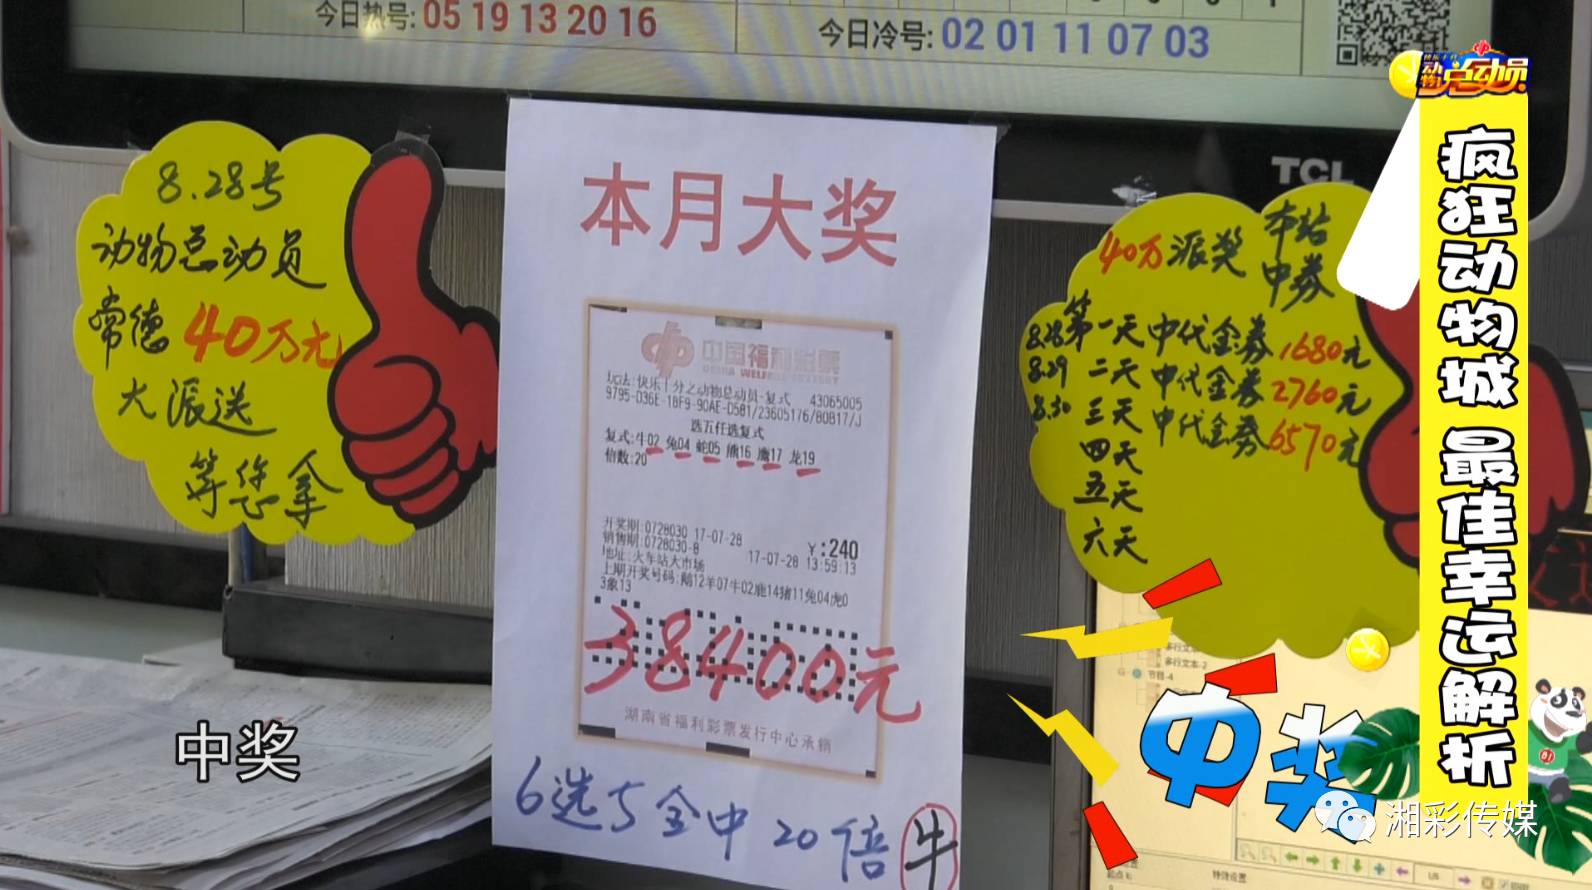 今日热号: 05 19 13 20 16
今日冷号: 02 01 11 07 03
动物总动员
TCL
疯狂动物城 最佳幸运解析
8.28号
动物总动员
常德 40万元
大派送
等您拿
本月大奖
中国福利彩票
CHINA WELFARE LOTTERY
玩法:快乐十分之动物总动员-复式 43065005
9795-D36E-18F9-90AE-D581/23605176/80B17/J
选五任选复式
复式:牛02 兔04 蛇05 熊16 鹰17 龙19
倍数:20
开奖期:0728030 17-07-28
销售期:0728030-8 17-07-28 13:59:13
¥:240
地址:火车站大市场
上期开奖号码:鹅12羊07牛02鹿14猪11兔04虎0
3象13
38400元
湖南省福利彩票发行中心承销
6选5全中 20倍 牛
40万派奖 本站
中券
8.28 第一天 中代金券 1680元
8.29 二天 中代金券 2760元
8.30 三天 中代金券 6570元
四天
五天
六天
多行文本-2
节目-4
特效设置
中奖
中奖
湘彩传媒